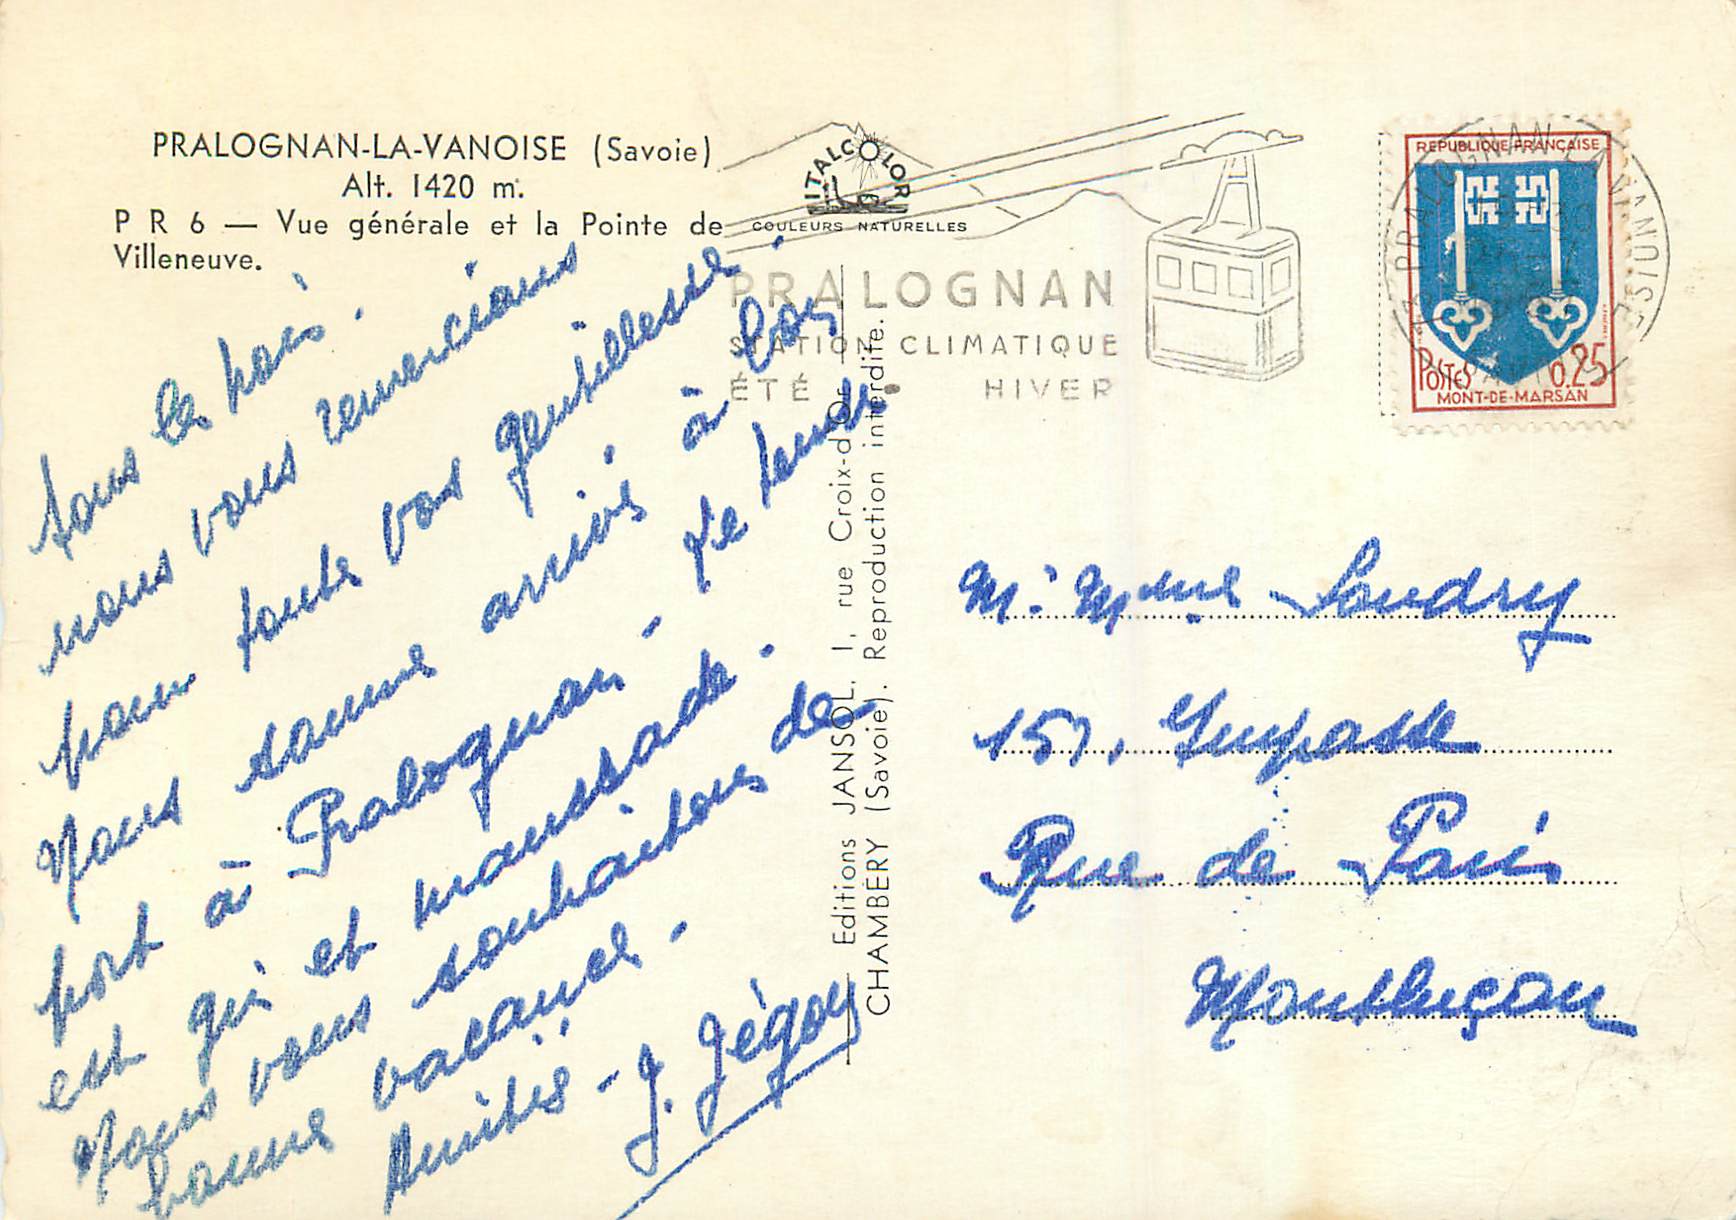 PRALOGNAN-LA-VANOISE (Savoie)
Alt. 1420 m.
P R 6 — Vue générale et la Pointe de
Villeneuve.
ITALCOLOR
COULEURS NATURELLES
PRALOGNAN
STATION CLIMATIQUE
ÉTÉ HIVER
PRALOGNAN LA VANOISE
REPUBLIQUE FRANÇAISE
POSTES 0,25
MONT-DE-MARSAN
tous les trois.
nous vous remercions
pour toute vos gentillesse.
Nous sommes arrivés à bon
port à Pralognan. Le temps
est gris et maussade.
Nous vous souhaitons de
bonne vacances.
Amitiés - J. Jégou
Editions JANSOL, 1, rue Croix-d'Or
CHAMBERY (Savoie). Reproduction interdite.
Mr Mme Soudry
157, Impasse
Rue de Paris
Montluçon